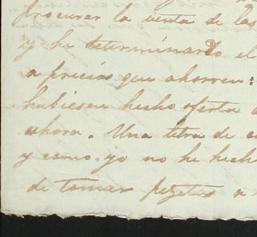 procurar la venta de las
y he determinado el
a precios que ahorren:
hubiesen hecho oferta
ahora. Una letra de
y como yo no he hech
de tomar pesetas a